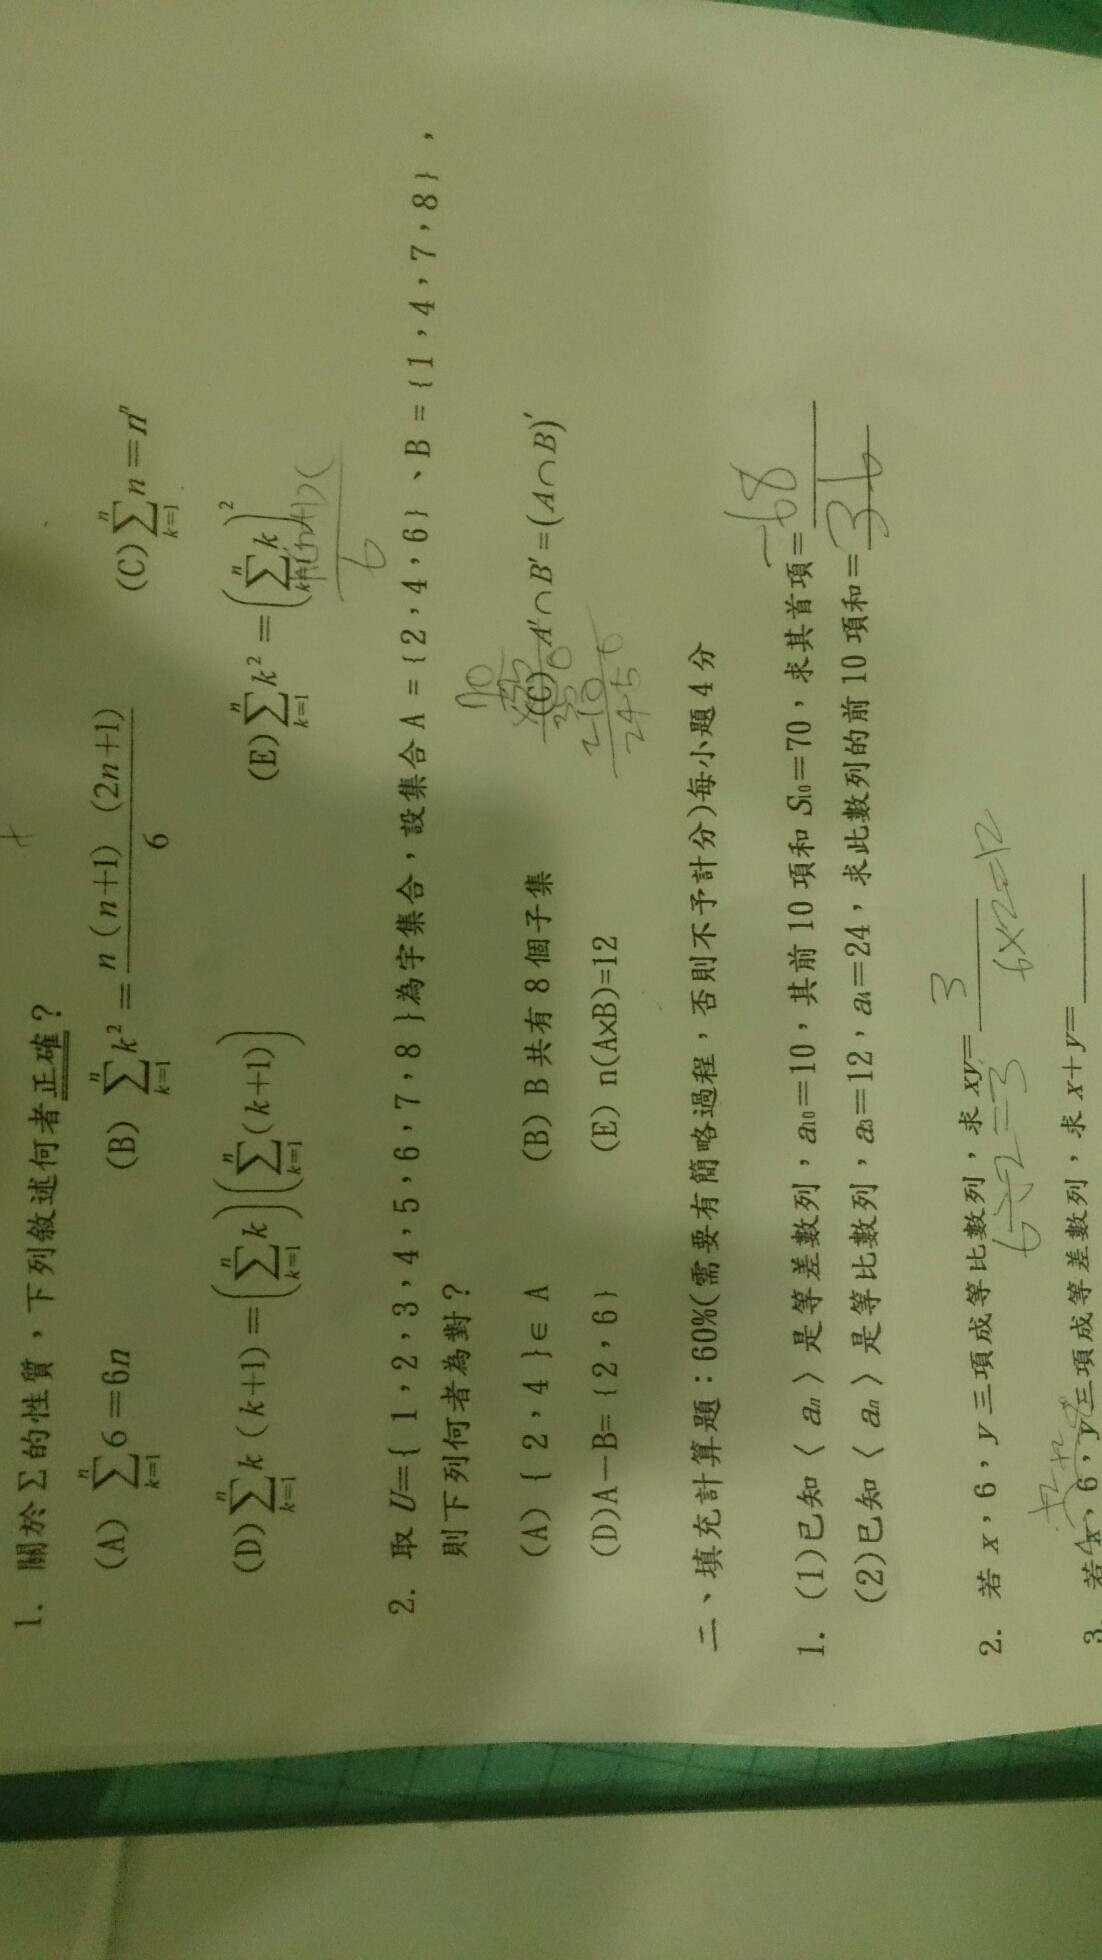 1. 關於 Σ 的性質，下列敘述何者正確？
(A) \sum_{k=1}^{n} 6 = 6n (B) \sum_{k=1}^{n} k^2 = \frac{n(n+1)(2n+1)}{6} (C) \sum_{k=1}^{n} n = n^n
(D) \sum_{k=1}^{n} k(k+1) = (\sum_{k=1}^{n} k)(\sum_{k=1}^{n} (k+1)) (E) \sum_{k=1}^{n} k^2 = (\sum_{k=1}^{n} k)^2
6
2. 取 U={ 1，2，3，4，5，6，7，8 }為宇集合，設集合 A = { 2，4，6 }、B = { 1，4，7，8 }，
則下列何者為對？
(A) { 2，4 } ∈ A (B) B 共有 8 個子集 (C) A′∩B′=(A∩B)′
(D)A－B= { 2，6 } (E) n(A×B)=12
210
2450
二、填充計算題：60%(需要有簡略過程，否則不予計分)每小題 4 分
1. (1)已知〈 aₙ 〉是等差數列，a₁₀=10，其前 10 項和 S₁₀=70，求其首項= -68
(2)已知〈 aₙ 〉是等比數列，a₃=12，a₄=24，求此數列的前 10 項和= 36
2. 若 x，6，y 三項成等比數列，求 xy= 3
6÷2=3 6×2=12
3. 若 x，6，y 三項成等差數列，求 x+y=